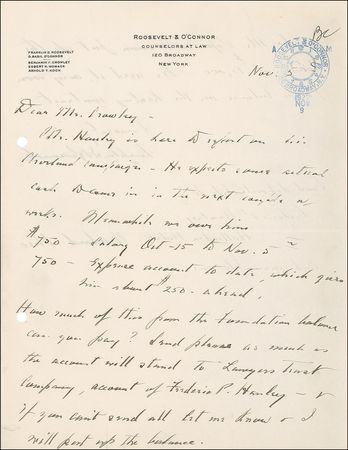 ROOSEVELT & O'CONNOR
COUNSELORS AT LAW
120 BROADWAY
NEW YORK
FRANKLIN D. ROOSEVELT
D. BASIL O'CONNOR
BENJAMIN F. CROWLEY
EGBERT H. WOMACK
ARNOLD T. KOCH
ROOSEVELT & O'CONNOR
A M
NOV
9
Nov. 5
Dear Mr. Crowley -
Mr. Hanley is here to report on his
Cleveland campaign - He expects some actual
cash to come in in the next couple a
weeks. Meanwhile we owe him
$750 - Salary Oct - 15 to Nov. 5
750 - Expense account to date, which gives
him about $250 - ahead,
How much of this from the Foundation balance
can you pay? Send please as much as
the account will stand to Lawyers Trust
Company, account of Frederic P. Hanley - &
if you can't send all let me know & I
will put up the balance.